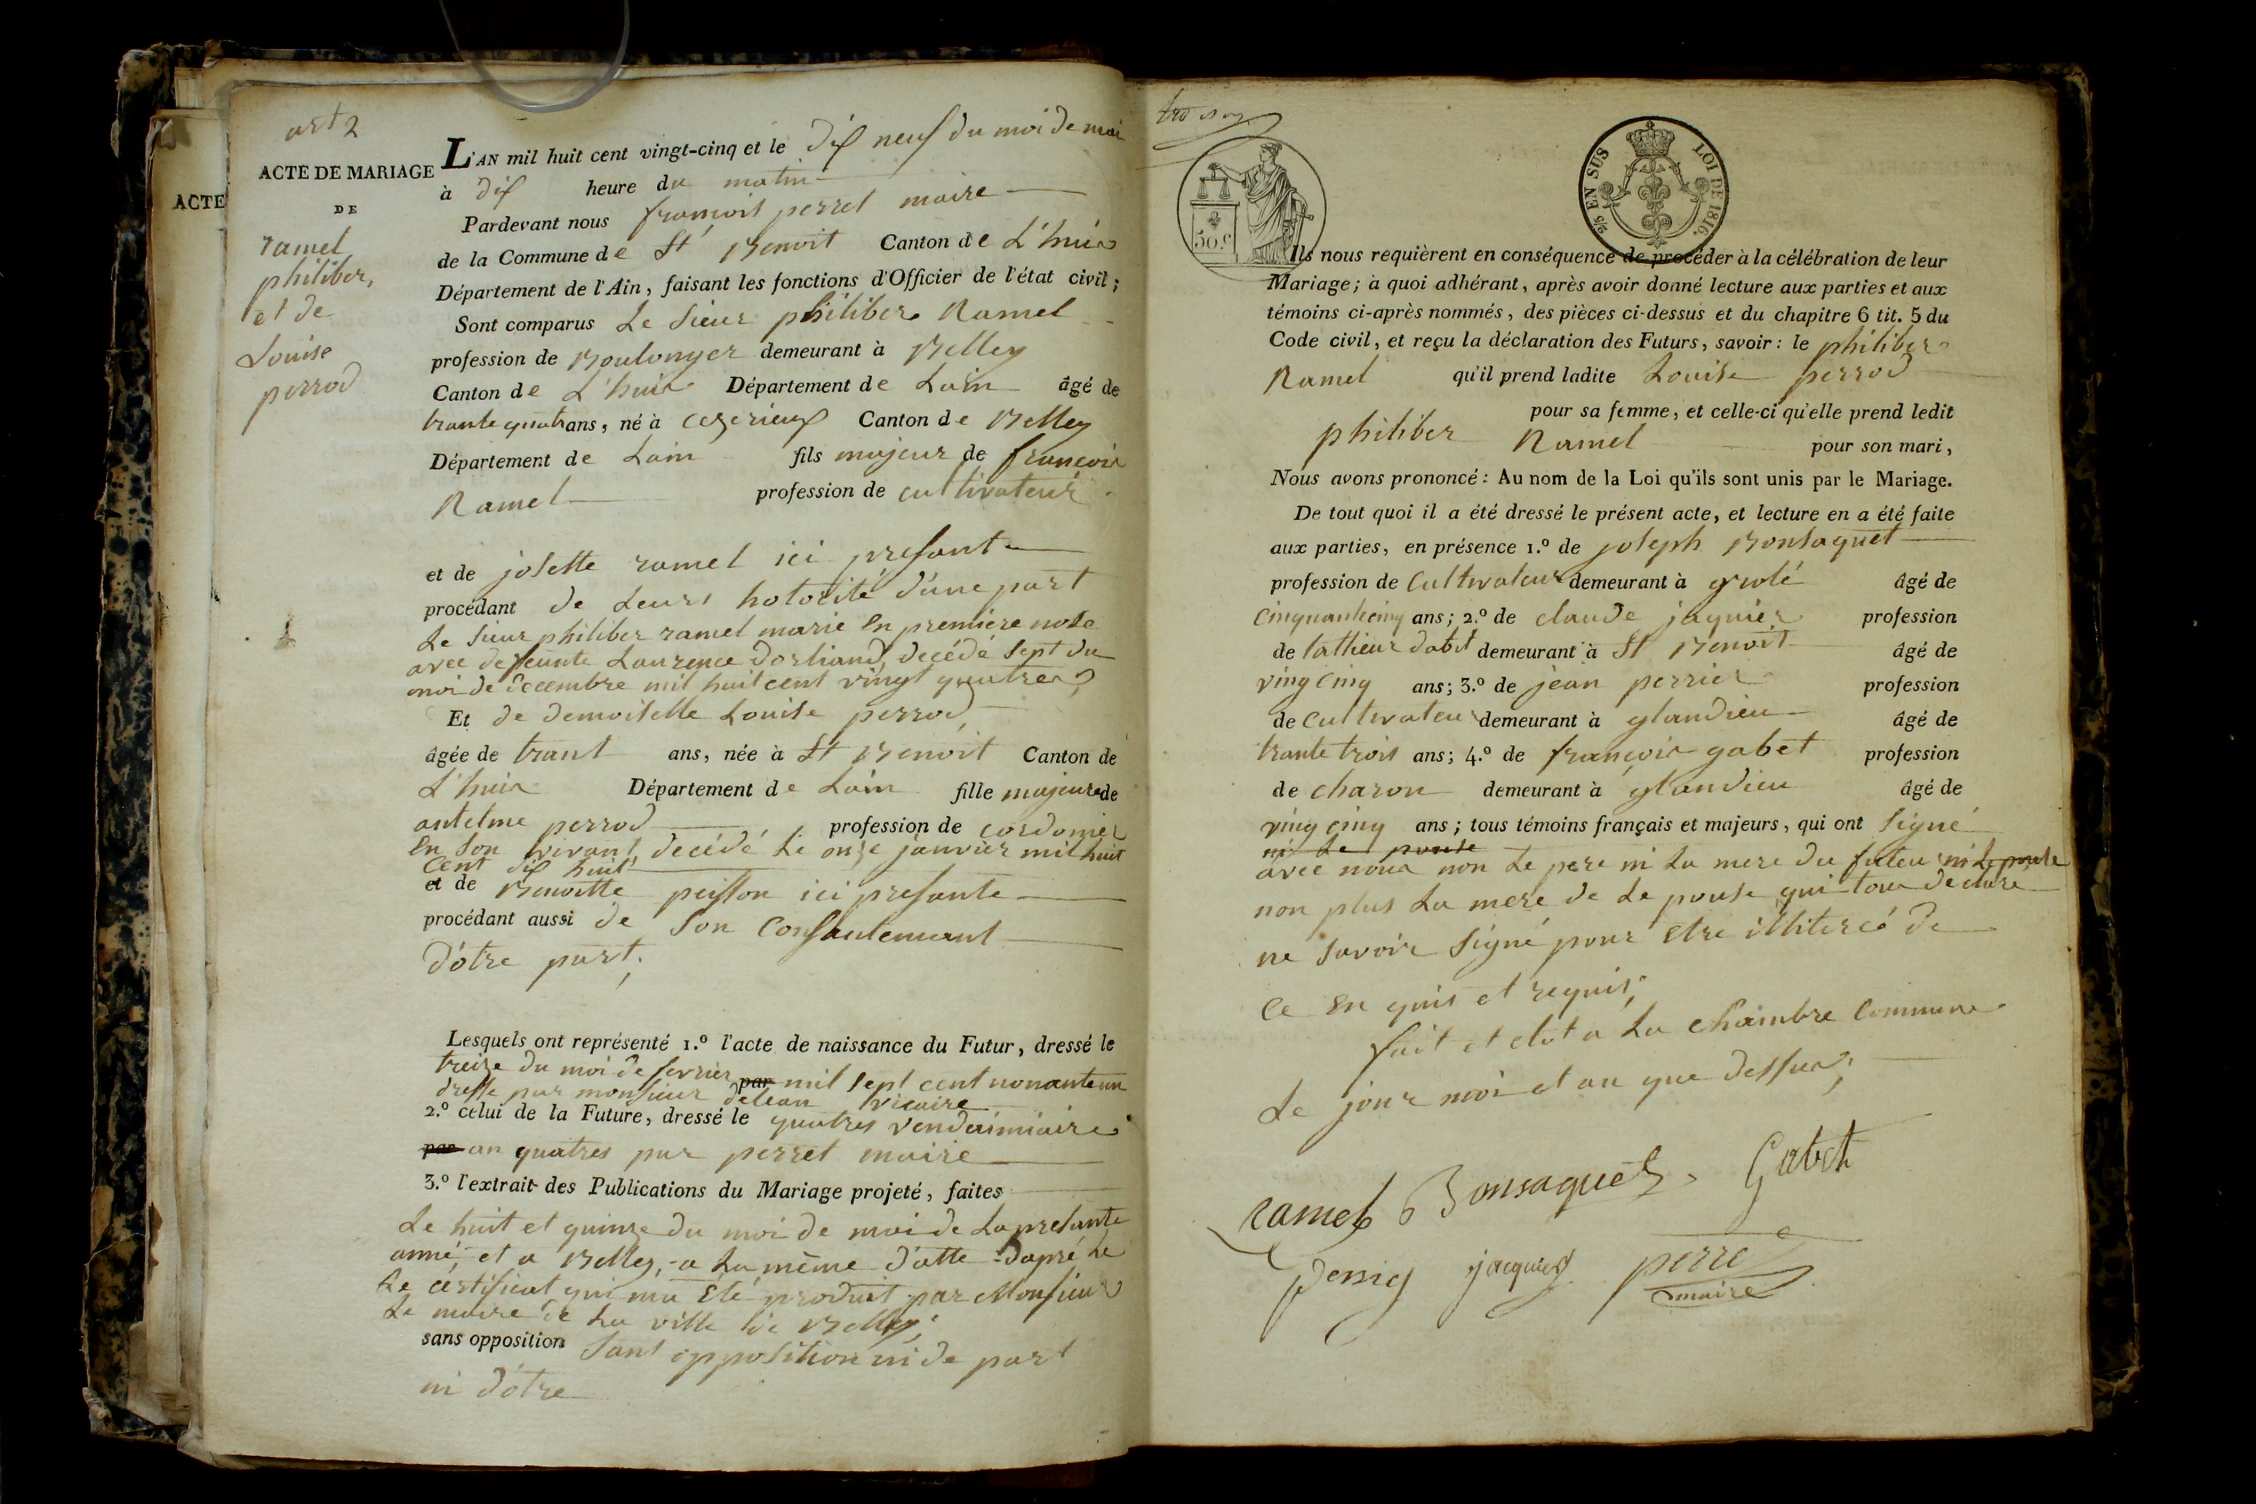 art 2
ACTE
ACTE DE MARIAGE
DE
ramel
philiber,
et de
Louise
perrod
L'AN mil huit cent vingt-cinq et le dix neuf du moi de mai
à dix heure du matin
Pardevant nous françois perret maire
de la Commune de St Benoit Canton de L'huis
Département de l'Ain, faisant les fonctions d'Officier de l'état civil;
Sont comparus Le Sieur philiber Ramel
profession de Boulonger demeurant à Belley
Canton de L'huis Département de Lain âgé de
trante quatr ans, né à ceyzerieux Canton de Belley
Département de Lain fils majeur de françois
Ramel profession de cultivateur
et de josette ramel ici presante
procédant de Leurs hotorité d'une part
Le Sieur philiber ramel marié En premiere nose
avec defeunte Laurence Dorliand, decédé Sept du
moi de decembre mil huit cent vingt quatre
Et de demoiselle Louise perrod
âgée de trant ans, née à St Benoit Canton de
L'huis Département de Lain fille majeure de
antelme perrod profession de cordonier
En Son vivant decédé Le onze janvier mil huit
Cent dix huit
et de Benoitte peisson ici presante
procédant aussi de Son Consantemant
d'ôtre part;
Lesquels ont représenté 1.º l'acte de naissance du Futur, dressé le
treize du moi de fevrier par mil sept cent nonante un
dresse par monsieur deleau vicaire
2.º celui de la Future, dressé le quatres vendaimiaire
par an quatres par perret maire
3.º l'extrait des Publications du Mariage projeté, faites
Le huit et quinze du moi de mai de La presante
anné et a Belley, a La même datte dapré Le
Le certificat qui ma Eté produit par Monsieur
Le maire de La ville de Belley;
sans opposition Sans opposition ni de part
ni d'ôtre
50 c
2/5 EN SUS
LOI DE 1816.
Ils nous requièrent en conséquence de procéder à la célébration de leur
Mariage; à quoi adhérant, après avoir donné lecture aux parties et aux
témoins ci-après nommés, des pièces ci-dessus et du chapitre 6 tit. 5 du
Code civil, et reçu la déclaration des Futurs, savoir: le philiber
Ramel qu'il prend ladite Louise perrod
pour sa femme, et celle-ci qu'elle prend ledit
philiber Ramel pour son mari,
Nous avons prononcé: Au nom de la Loi qu'ils sont unis par le Mariage.
De tout quoi il a été dressé le présent acte, et lecture en a été faite
aux parties, en présence 1.º de joseph Bonsaquet
profession de Cultivateur demeurant à grolé âgé de
Cinquantecinq ans; 2.º de claude jaquier profession
de tallieur dabit demeurant à St Benoit âgé de
ving Cinq ans; 3.º de jean perrier profession
de Cultivateur demeurant à glandieu âgé de
trante trois ans; 4.º de françois gabet profession
de charon demeurant à glandieu âgé de
ving cinq ans; tous témoins français et majeurs, qui ont Signé
ni Le pouse
avec nous non Le pere ni La mere du futeur ni Le pouse
non plus La mere de Le pouse qui tous declare
ne Savoir Signé pour Etre illiteré de
Ce En quis et requis;
fait et clot a La chambre Commune
Le jour moi et an que dessus;
Ramel Bonsaquet Gabet
jacquier perret
maire